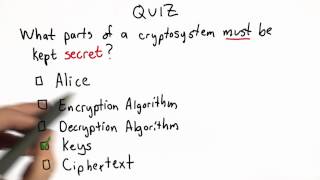 QUIZ
What parts of a cryptosystem must be
kept secret?
Alice
Encryption Algorithm
Decryption Algorithm
Keys
Ciphertext